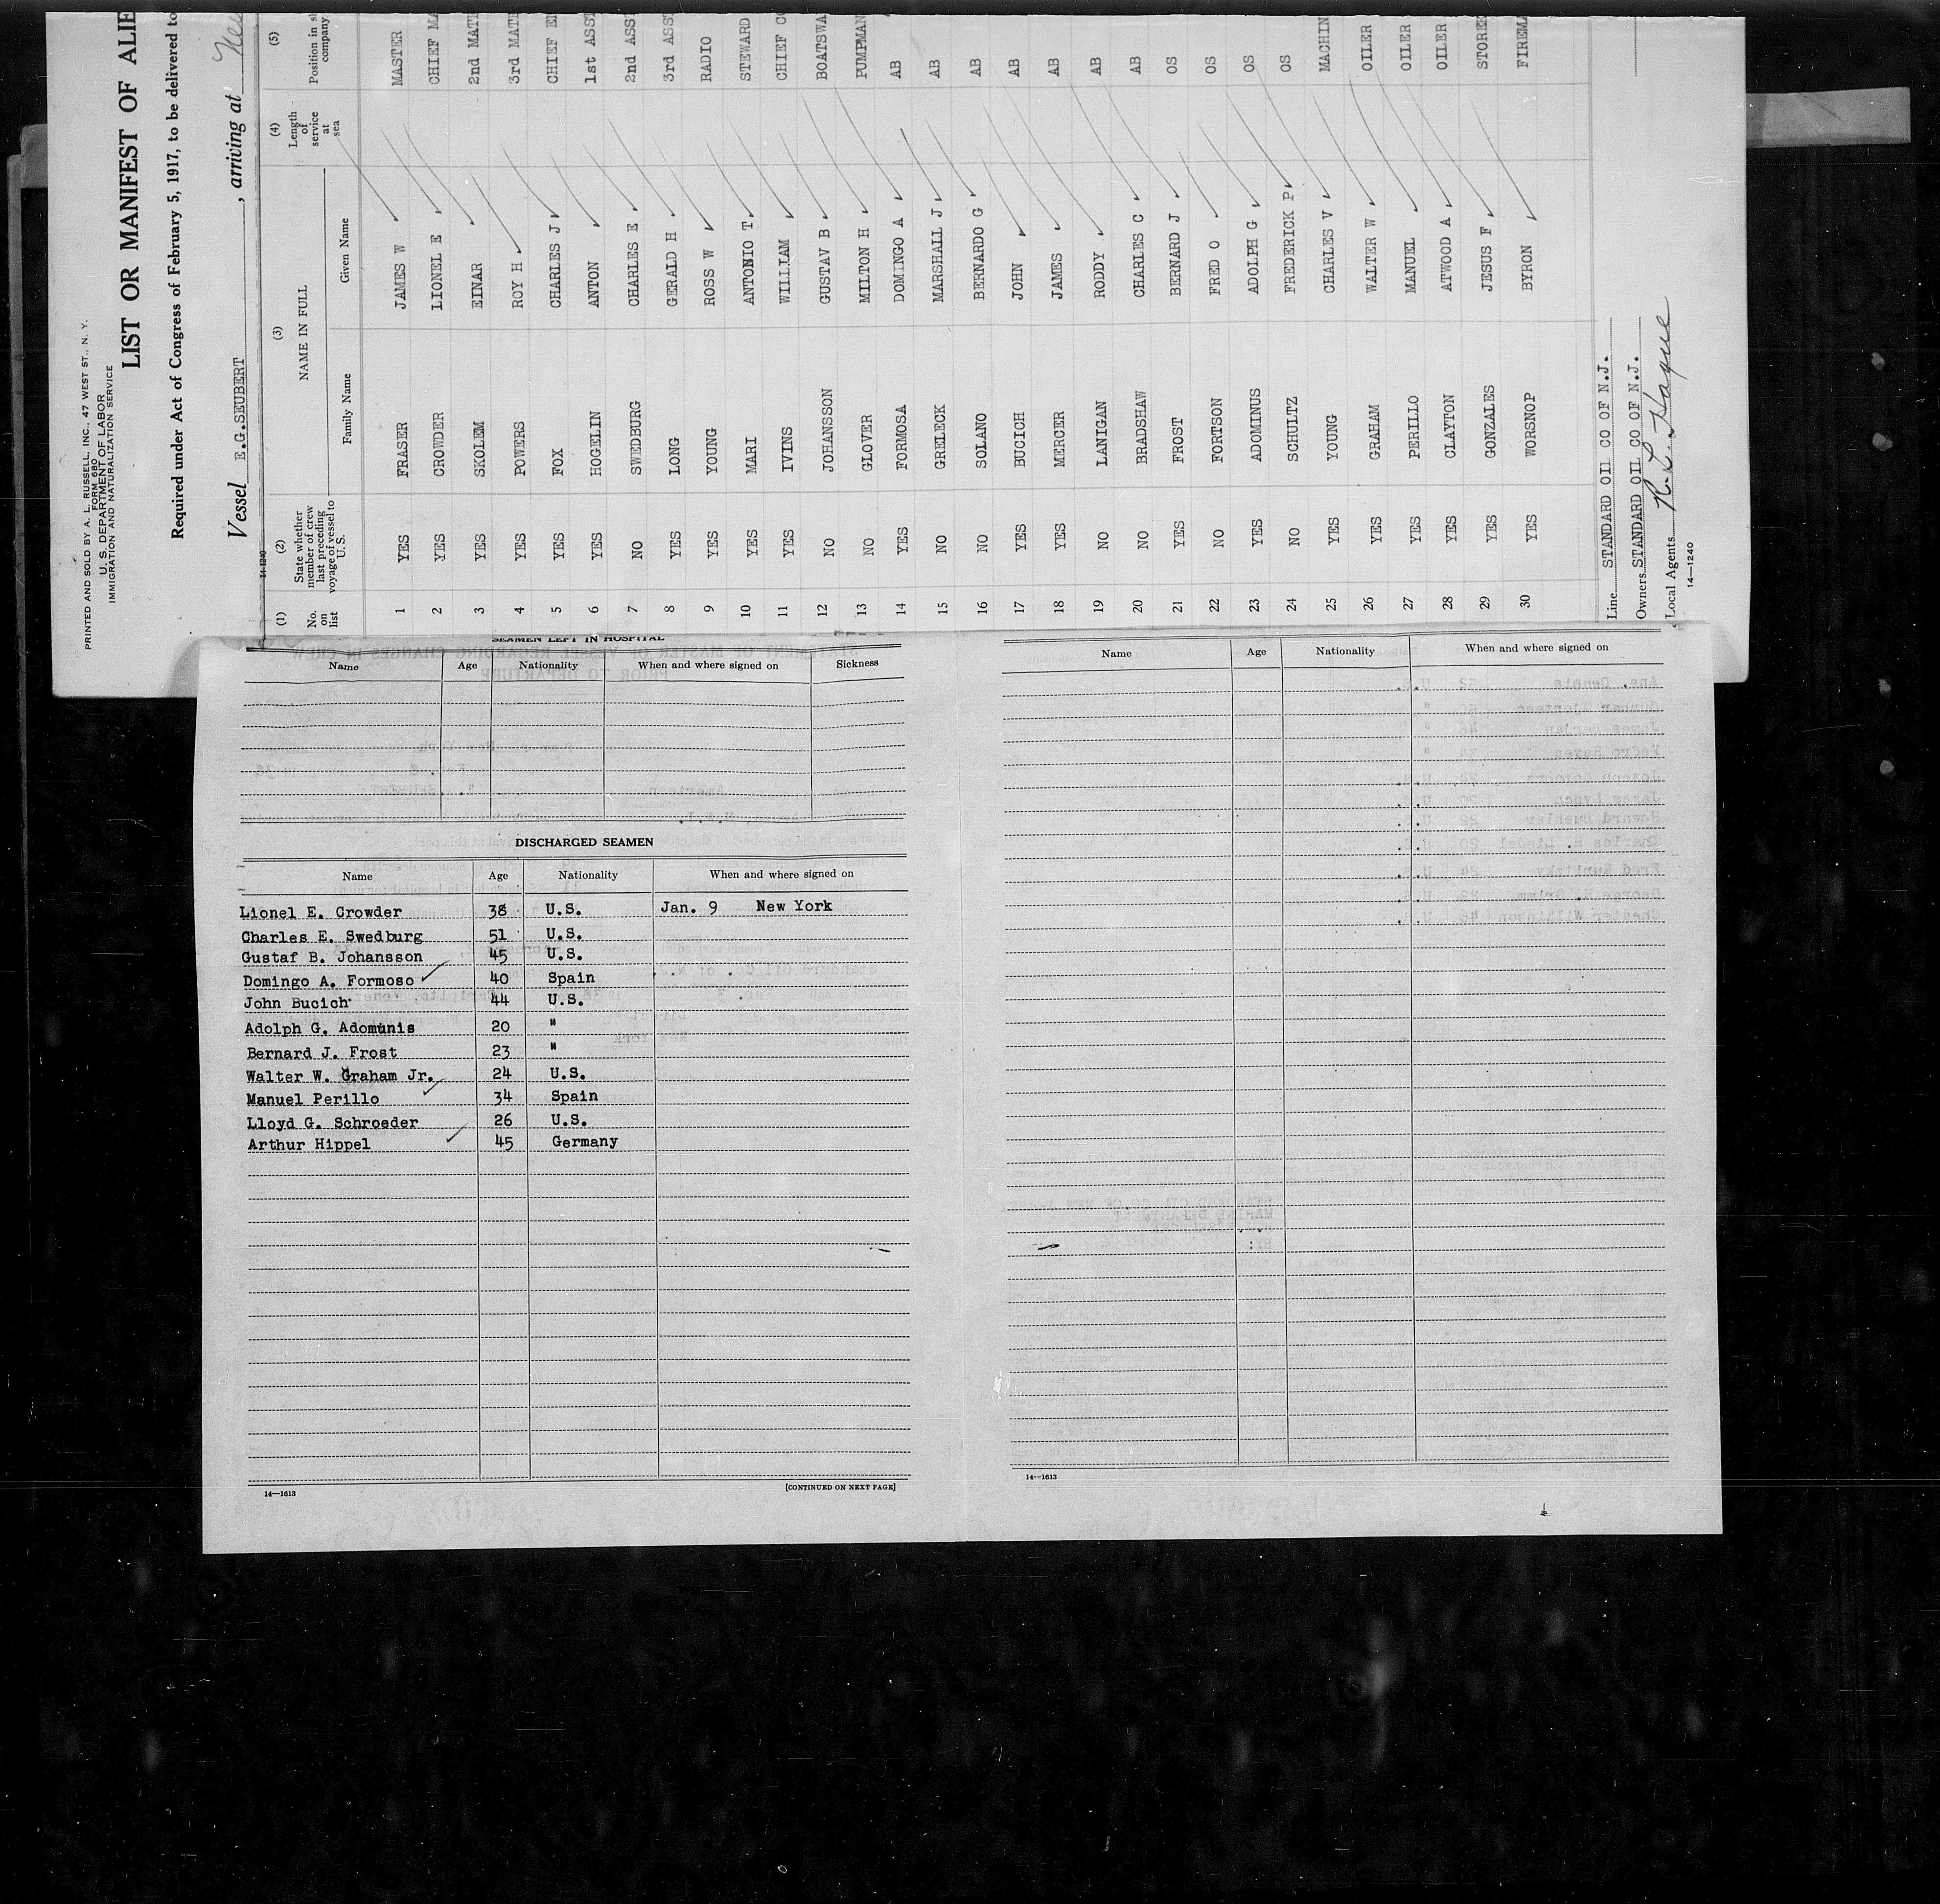 PRINTED AND SOLD BY A. L. RUSSELL, INC., 47 WEST ST., N. Y.
FORM 680
U. S. DEPARTMENT OF LABOR
IMMIGRATION AND NATURALIZATION SERVICE
LIST OR MANIFEST OF ALIE
Required under Act of Congress of February 5, 1917, to be delivered to
Vessel E.G.SEUBERT , arriving at Ne
14-1240
(1) (2) (3) (4) (5)
No. on list State whether member of crew last preceding voyage of vessel to U. S. NAME IN FULL Length of service at sea Position in sh company
Family Name Given Name
1 YES FRASER JAMES W MASTER
2 YES CROWDER LIONEL E CHIEF MA
3 YES SKOLEM EINAR 2nd MATE
4 YES POWERS ROY H 3rd MATE
5 YES FOX CHARLES J CHIEF EN
6 YES HOGELIN ANTON 1st ASST
7 NO SWEDBURG CHARLES E 2nd ASS
8 YES LONG GERALD H 3rd ASS
9 YES YOUNG ROSS W RADIO
10 YES MARI ANTONIO T STEWARD
11 YES IVINS WILLIAM CHIEF CO
12 NO JOHANSSON GUSTAV B BOATSWA
13 NO GLOVER MILTON H PUMPMAN
14 YES FORMOSA DOMINGO A AB
15 NO GRELECK MARSHALL J AB
16 NO SOLANO BERNARDO G AB
17 YES BUCICH JOHN AB
18 YES MERCER JAMES AB
19 NO LANIGAN RODDY AB
20 NO BRADSHAW CHARLES C AB
21 YES FROST BERNARD J OS
22 NO FORTSON FRED O OS
23 YES ADOMINUS ADOLPH G OS
24 NO SCHULTZ FREDERICK P OS
25 YES YOUNG CHARLES V MACHIN
26 YES GRAHAM WALTER W OILER
27 YES PERILLO MANUEL OILER
28 YES CLAYTON ATWOOD A OILER
29 YES GONZALES JESUS F STOREK
30 YES WORSNOP BYRON FIREMA
Line STANDARD OIL CO OF N.J.
Owners STANDARD OIL CO OF N.J.
Local Agents R. L. Hague
14—1240
SEAMEN LEFT IN HOSPITAL
Name Age Nationality When and where signed on Sickness
DISCHARGED SEAMEN
Name Age Nationality When and where signed on
Lionel E. Crowder 38 U.S. Jan. 9 New York
Charles E. Swedburg 51 U.S.
Gustaf B. Johansson 45 U.S.
Domingo A. Formoso 40 Spain
John Bucich 44 U.S.
Adolph G. Adomunis 20 "
Bernard J. Frost 23 "
Walter W. Graham Jr. 24 U.S.
Manuel Perillo 34 Spain
Lloyd G. Schroeder 26 U.S.
Arthur Hippel 45 Germany
14—1613
[CONTINUED ON NEXT PAGE]
Name Age Nationality When and where signed on
14—1613